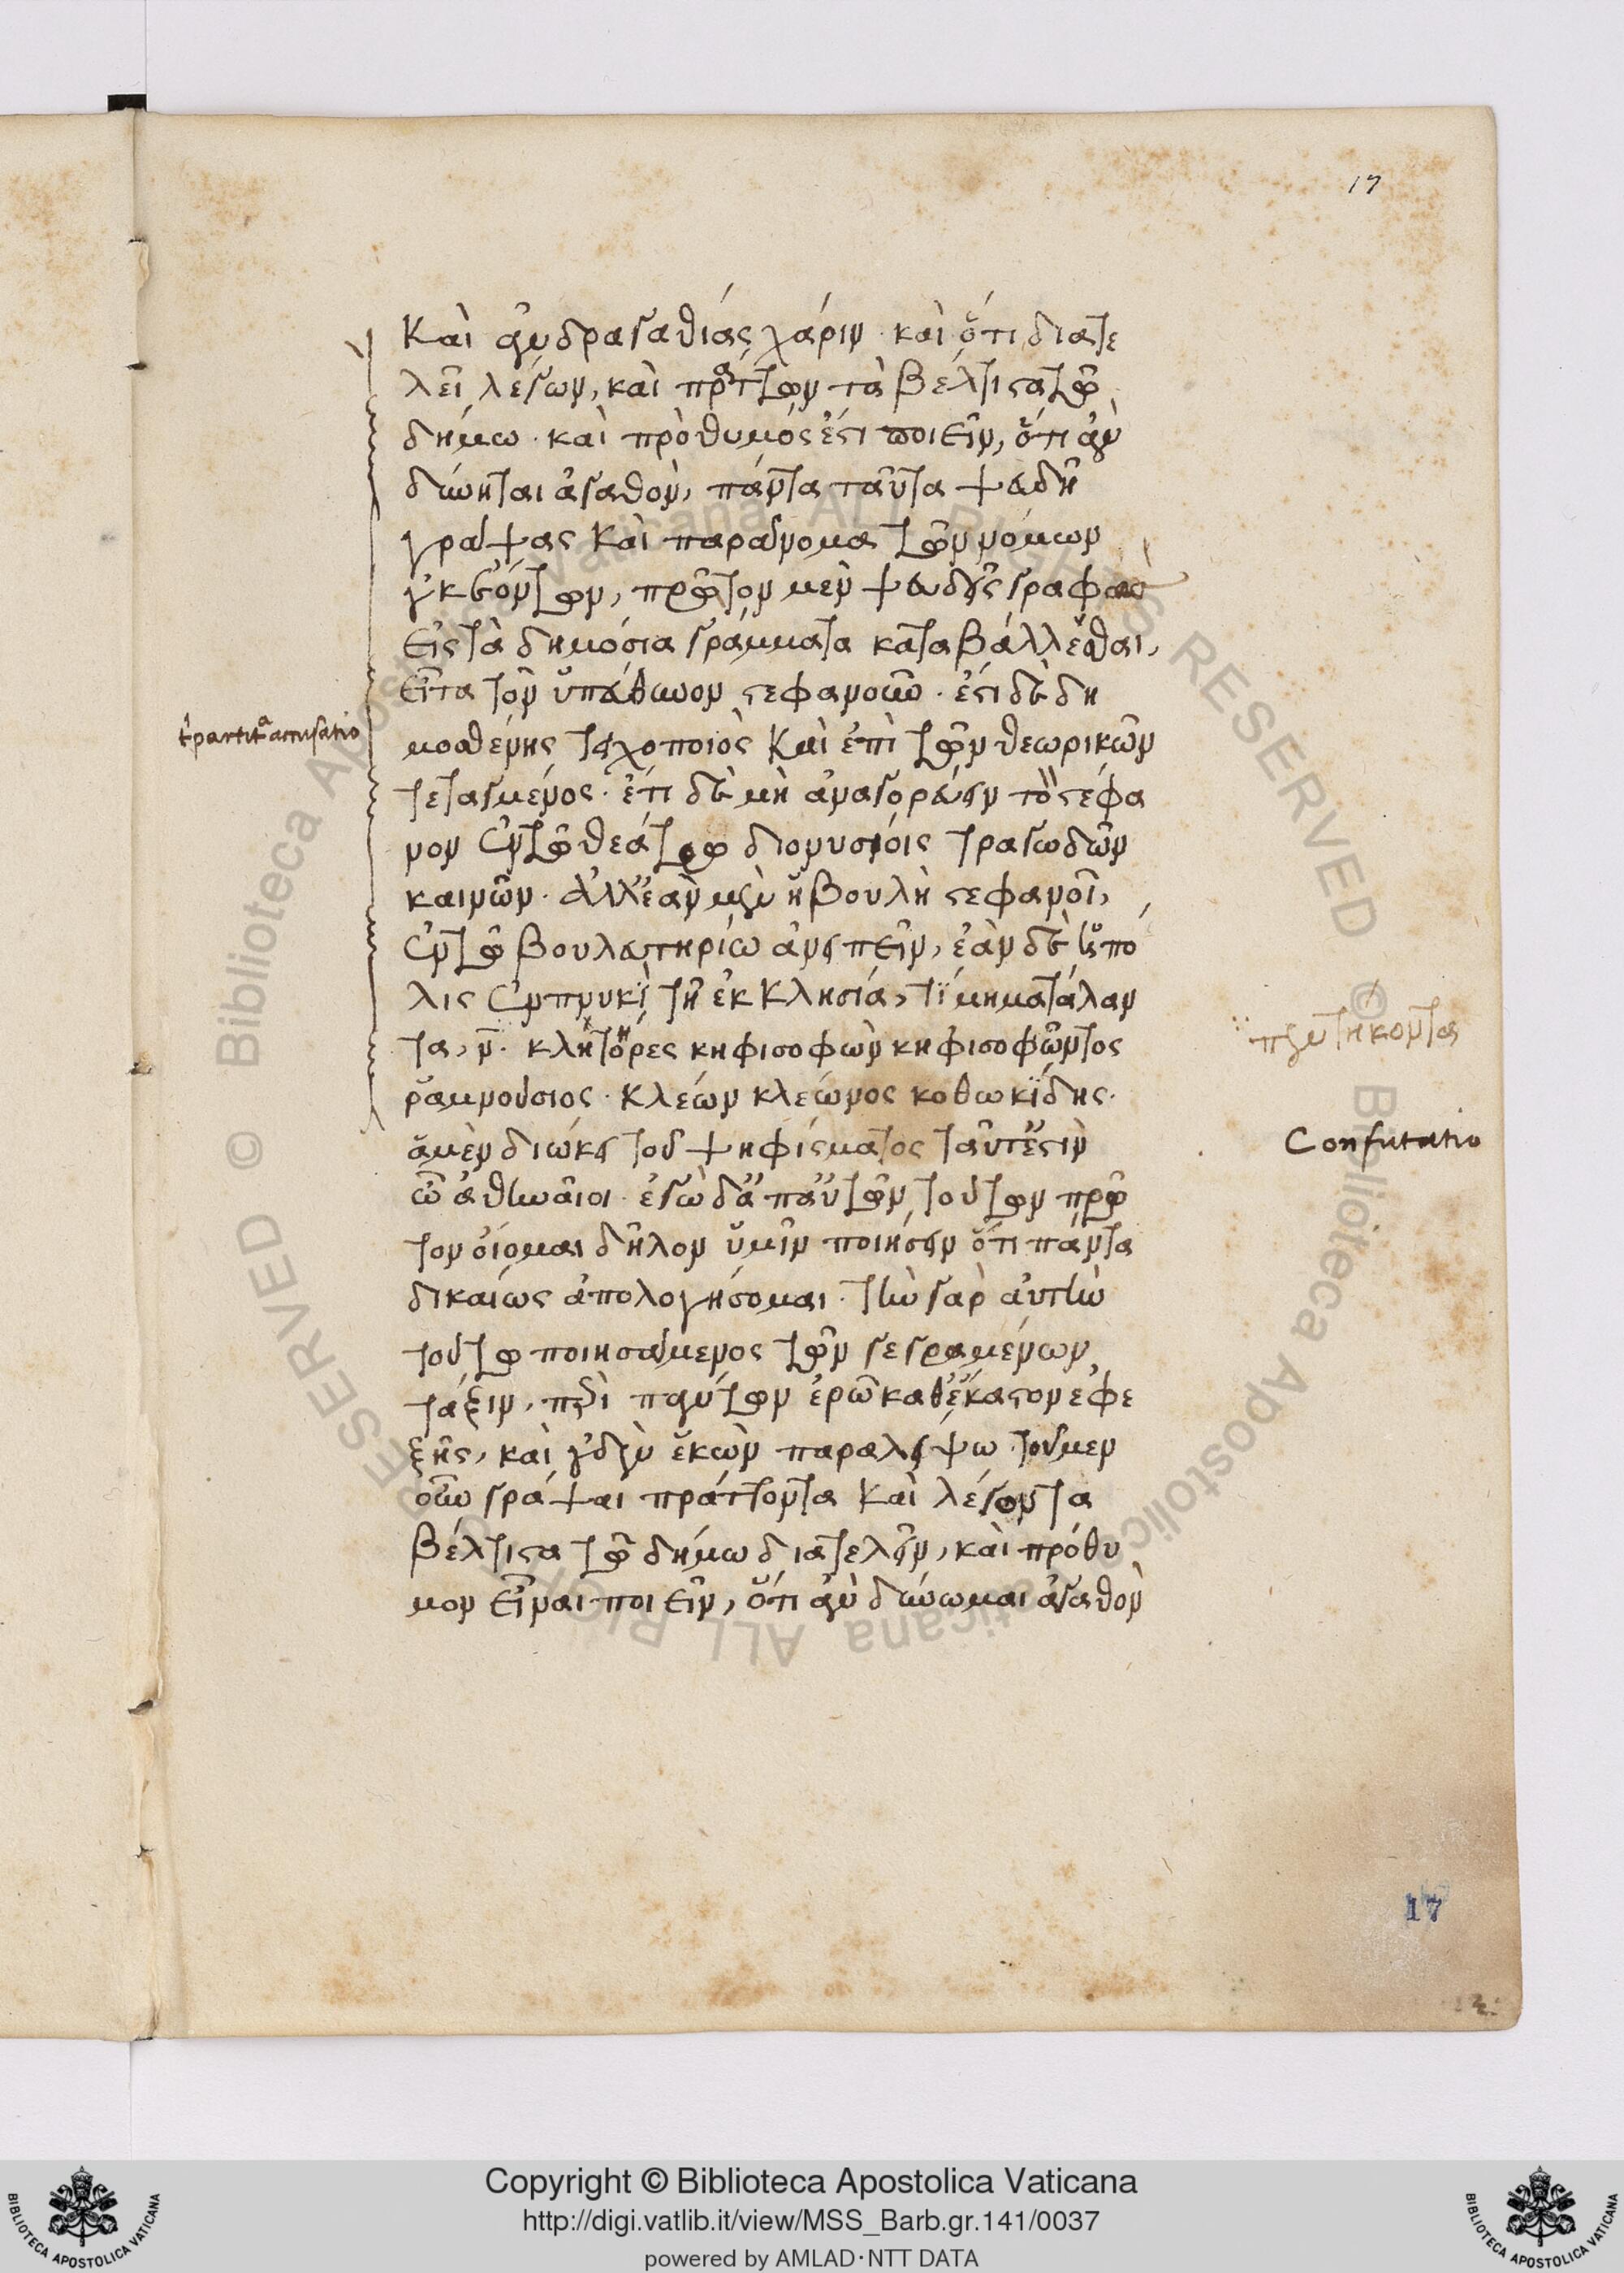 17
Καὶ ἀνδραγαθίας χάριν · καὶ ὅτι διατε
λεῖ λέγων, καὶ πράττων τὰ βέλτιστα τῶ
δήμω · καὶ πρόθυμός ἐστι ποιεῖν, ὅτι ἂν
δύνηται ἀγαθὸν, πάντα ταῦτα ψευδῆ
γράψας καὶ παράνομα τῶν νόμων
οὐκ ἐόντων, πρῶτον μὲν ψευδεῖς γραφὰς
εἰς τὰ δημόσια γράμματα καταβάλλεσθαι,
εἶτα τὸν ὑπεύθυνον στεφανοῦν · ἔστι δὲ δη
tripartita accusatio
μοσθένης τειχοποιὸς καὶ ἐπὶ τῶν θεωρικῶν
τεταγμένος · ἔτι δὲ μὴ ἀναγορεύειν τὸν στέφα
νον ἐν τῶ θεάτρω διονυσίοις τραγωδῶν
καινῶν · ἀλλ' ἐὰν μὲν ἡ βουλὴ στεφανοῖ,
ἐν τῶ βουλευτηρίω ἀνειπεῖν, ἐὰν δὲ ἡ πό
λις ἐν πνυκὶ τῆ ἐκκλησία, τίμημα τάλαν
πεντήκοντα
τα, ν · κλήτορες κηφισοφῶν κηφισοφῶντος
ῥαμνούσιος · κλέων κλέωνος κοθωκίδης ·
Confutatio
ἃ μὲν διώκει τοῦ ψηφίσματος ταῦτ' ἐστὶν
ὦ ἀθηναῖοι · ἐγὼ δ' ἀπ' αὐτῶν τούτων πρῶ
τον οἴομαι δῆλον ὑμῖν ποιήσειν ὅτι πάντα
δικαίως ἀπολογήσομαι · τὴν γὰρ αὐτὴν
τούτω ποιησάμενος τῶν γεγραμένων
τάξιν, περὶ πάντων ἐρῶ καθ' ἕκαστον ἐφε
ξῆς, καὶ οὐδὲν ἑκὼν παραλείψω · τοῦ μὲν
οὖν γράψαι πράττοντα καὶ λέγοντα
βέλτιστα τῶ δήμω διατελεῖν, καὶ πρόθυ
μον εἶναι ποιεῖν, ὅτι ἂν δύνωμαι ἀγαθὸν
17
Copyright © Biblioteca Apostolica Vaticana
http://digi.vatlib.it/view/MSS_Barb.gr.141/0037
powered by AMLAD·NTT DATA
BIBLIOTECA APOSTOLICA VATICANA
BIBLIOTECA APOSTOLICA VATICANA